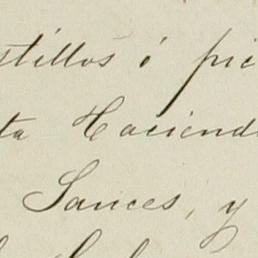 stillos ó pie
ta Haciend
Sauces, y